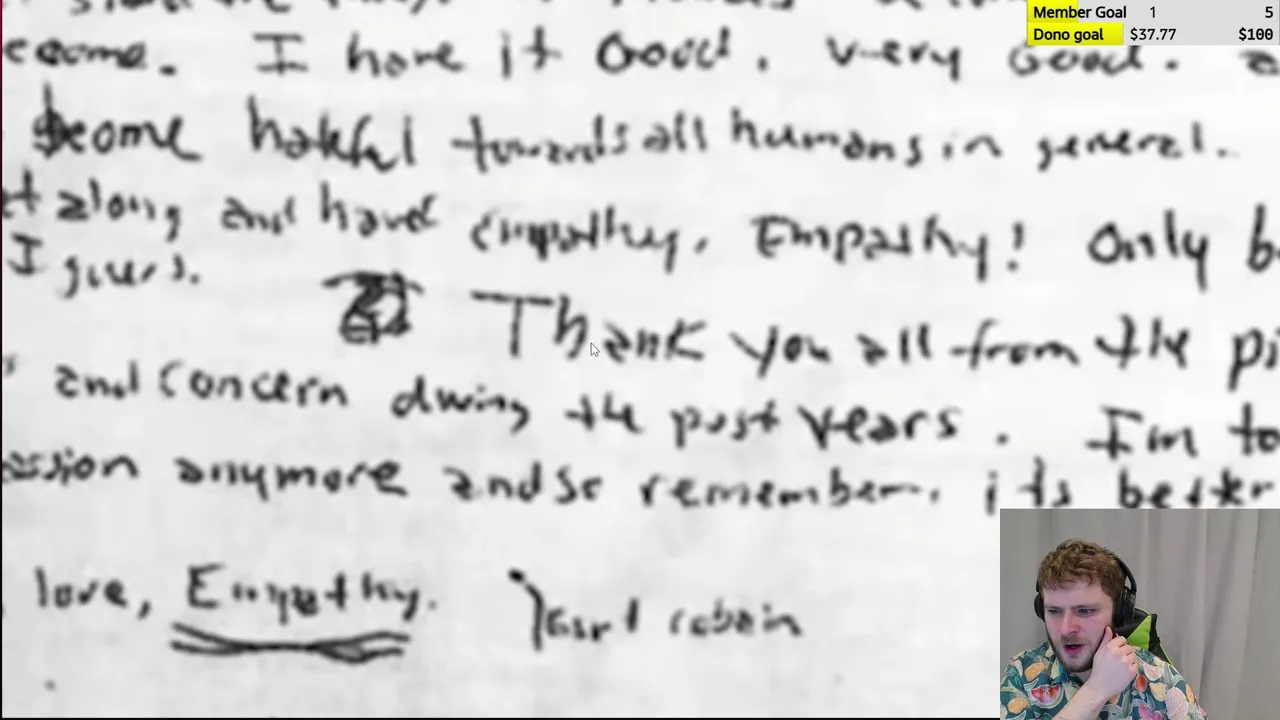 Member Goal 1 5
Dono goal $37.77 $100
I have it Good. very Good.
become hateful towards all humans in general.
along and have empathy. Empathy! Only
I guess.
Thank you all from the
and concern during the past years. I'm
anymore and so remember. its better
love, Empathy. Kurt Cobain